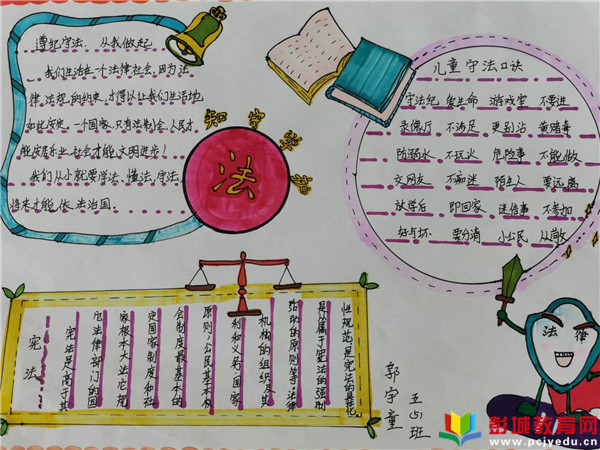 遵纪守法、从我做起
我们生活在一个法律社会,因为法
律、法规的约束,才得以让我们生活地
如此安定。一个国家,只有法制健全,人民才
能安居乐业,社会才能文明进步!
我们从小就要学法、懂法、守法,
将来才能依法治国。
知守学
法
儿童守法口诀
守法纪 爱生命 游戏室 不要进
录像厅 不满足 更别沾 黄赌毒
防溺水 不玩火 危险事 不能做
交网友 不痴迷 陌生人 要远离
放学后 即回家 迷信事 不参加
好与坏 要分清 小公民 从我做
宪法
宪法是高于其
它法律部门的国
家根本大法它规
定国家制度和社
会制度最基本的
原则,公民基本权
利和义务,国家
机构的组织及其
活动的原则等,法律
是从属于宪法的强制
性规范,是宪法的具体化
法律
郭宇童
五(5)班
彭城教育网
www.pcjyedu.cn